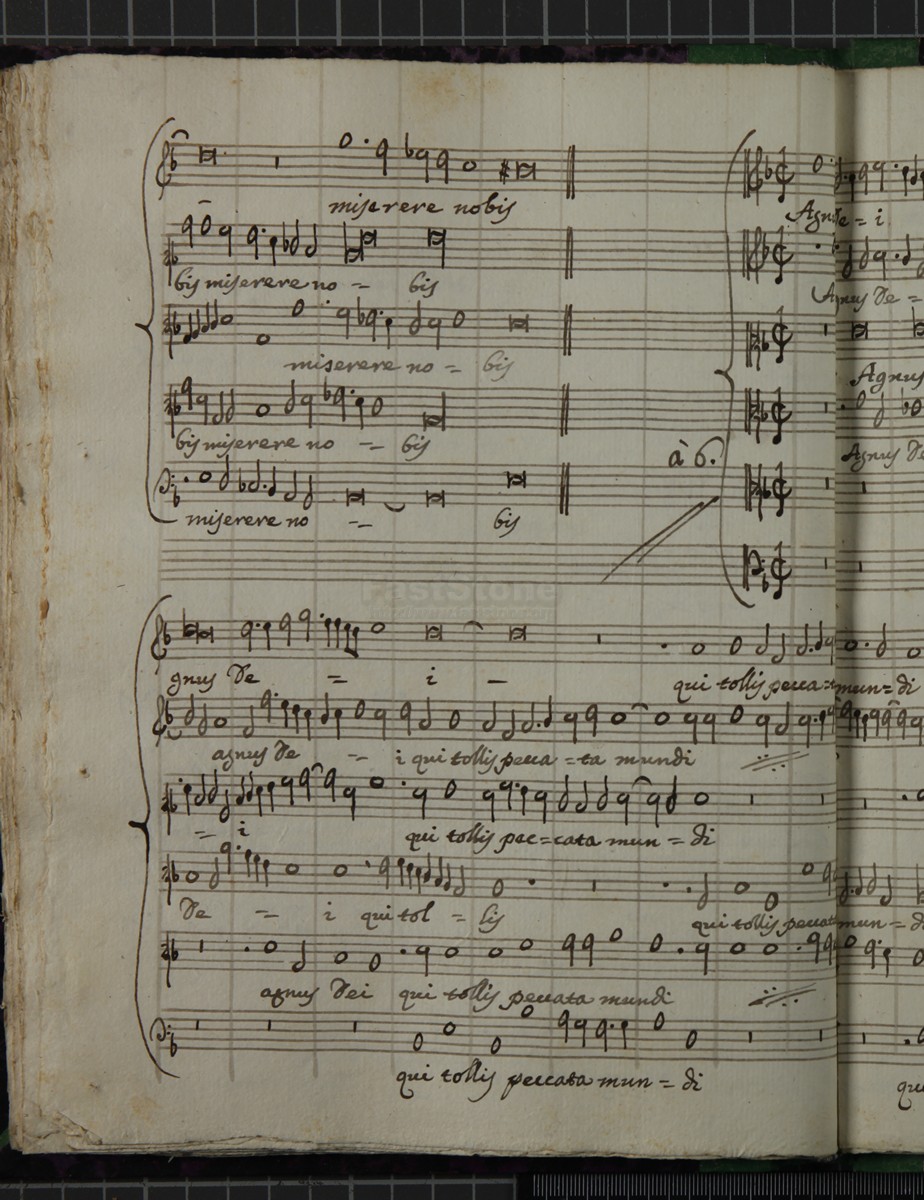 miserere nobis
Agnus De = i
bis miserere no = bis
Agnus De =
miserere no = bis
Agnus
bis miserere no = bis
à 6.
Agnus De
miserere no = bis
FastStone
gnus De = i –
qui tollis pecca=ta mun=di
agnus De = i qui tollis pecca=ta mundi
= i qui tollis pec=cata mun=di
De = i qui tol = lis qui tollis peccata mun=di
agnus Dei qui tollis peccata mundi
qui tollis peccata mun=di
qui